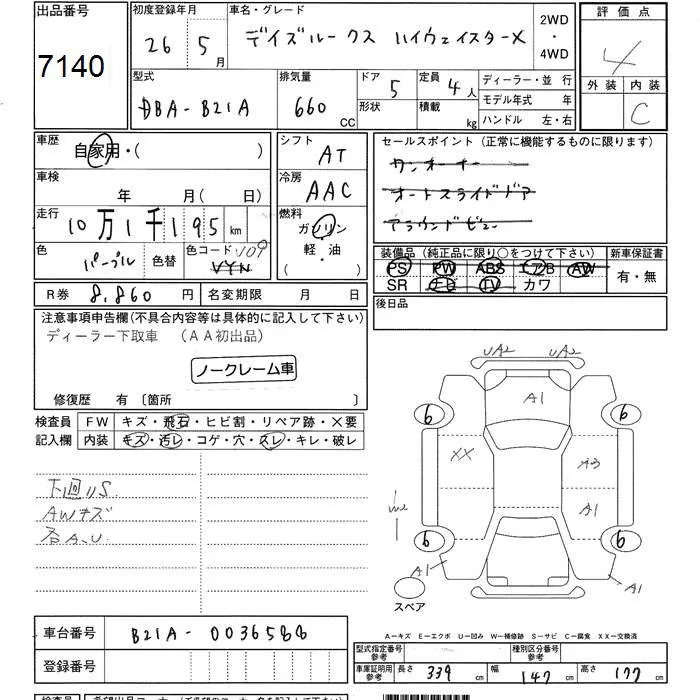 出品番号
7140
初度登録年月
26年 5月
車名・グレード
デイズルークス ハイウェイスターX
2WD
・
4WD
評価点
4
外装 内装
C
型式
DBA-B21A
排気量
660 CC
ドア 5
形状
定員 4人
積載 kg
ディーラー・並 行
モデル年式 年
ハンドル 左・右
車歴
自家用・( )
車検
年 月( 日)
走行
10万1千195 km
色
パープル
色替
色コード
シフト
AT
冷房
AAC
燃料
ガソリン
軽・油
( )
セールスポイント (正常に機能するものに限ります)
ワンオーナー
オートスライドドア
アラウンドビュー
装備品 (純正品に限り○をつけて下さい)
PS PW ABS エアB AW
SR ナビ TV カワ
新車保証書
有・無
後日品
R券 8,860円
名変期限 月 日
注意事項申告欄(不具合内容等は具体的に記入して下さい)
ディーラー下取車 (AA初出品)
ノークレーム車
修復歴 有 〔箇所 〕
検査員
記入欄
FW キズ・飛石・ヒビ割・リペア跡・X要
内装 キズ・汚レ・コゲ・穴・スレ・キレ・破レ
下回りS
AWキズ
各A.U
UA2 UA2
A1
6 6
XX A3
A1
6 6
A1 A1
スペア
A-キズ E-エクボ U-凹み W-補修跡 S-サビ C-腐食 XX-交換済
車台番号 B21A-0036588
登録番号
型式指定番号
参考
種別区分番号
参考
車庫証明用
参考
長さ 339 cm 幅 147 cm 高さ 177 cm